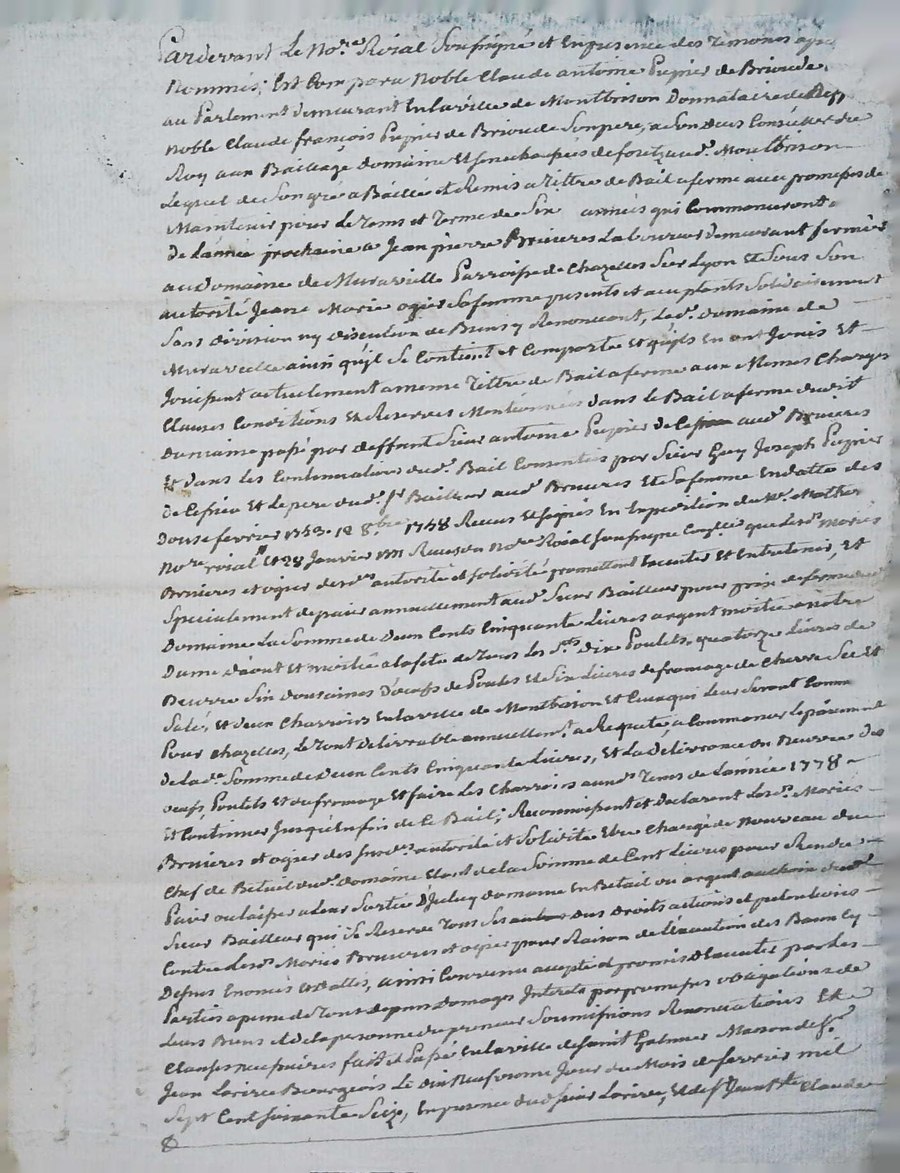 Pardevant Le No.re Roial Soussigné et En presence des Temoins apres
Nommés, Est Comparu Noble Claude antoine Pupier de Brioude
au Parlement demeurant En la ville de Montbrison Donnataire de
Noble Claude françois Pupier de Brioude Son pere, a Son deces Conseiller du
Roy aux Bailliage domaine Et Senechaussée de forez aud. Montbrison
Lequel de Son gré a Baillé et Remis a Tittre de Bail a ferme avec promesses de
Maintenir pour Le Tems et Terme de Six années qui Commenceront
De L'année prochaine a Jean pierre Bruieres Laboureur demeurant fermier
au domaine de Muravielle Parroisse de Chazelles Sur Lyon Et Sous Son
autorité Jeane Marie ogier Sa femme presents et acceptants Solidairement
Sans division ny discution de Biens y Renoncant, Led. domaine de
Muravielle ainsi qu'il Se Contient et Comporte Et qu'ils En ont Jouis Et
Jouissent actuellement a meme Tittre de Bail a ferme aux Memes Charges
Clauses Conditions Et Reserves Mentionnées dans le Bail a ferme dudit
domaine passé par deffunt Sieur antoine Pupier de aud. Bruieres
Et dans les Continuations dud. Bail Consenties par Sieur Guy Joseph Pupier
Et Le pere dud. Sr Bailleur aud. Bruieres Et Sa femme En datte des
Douse fevrier 1753. 18 8.bre 1758 Recus Et Signés En Expedition du
No.re roial Et 28 Janvier Recu par No.re Roial Soussigné que Lesd. Mariés
Bruieres et ogier desd. autorité et Solidité promettent Executer Et Entretenir, Et
Specialement de paier annuellement aud. Sieur Bailleur pour prix de ferme dud.
Domaine La Somme de Deux Cents Cinquante Livres argent moitié a notre
Dame d'aout Et moitié a la fete de Tous Les Sts. Dix Poulets, quatorze Livres de
Beurre Six Dousaines d'oeufs de Poules Et Six Livres de fromage de Chevre Sec Et
Salé, Et deux Charrois En la ville de Montbrison Et Ceux qui Leur Seront Comm
Pour Chazelles, Le Tout Delivrable annuellem.t a Requete, a Commencer Le paiement
De La d. Somme de Deux Cents Cinquante Livres, Et La Delivrance du Beurre des
oeufs, Poulets Et du fromage Et faire Les Charrois aux d. Tems de L'année 1778
Et Continuer Jusqu'En fin de Ce Bail, Reconnoissent et declarent Lesd. Mariés
Bruieres et ogier des Susd. autorité et Solidité Etre Chargé de Nouveau du
Chef de Betail dud. domaine Etant de La Somme de Cent Livres pour Rendre
Paier ou Laisser a Leur Sortie D'Iceluy domaine En Betail ou argent au Choix dud.
Sieur Bailleur qui Se Reserve Tous Ses Droits actions et petentions
Contre Lesd. Mariés Bruieres et ogier pour Raison de L'Execution des Baux Cy
Depus Enoncés Et Dattés, ainsi Convenu accepté et promis D'Executer par Les
Parties a peine de Tout depens Domages Interets par promesses obligations de
Leurs Biens Et de La personne du preneur Soumissions Renonciations Et
Clauses necessaires fait et Passé En La ville de Saint Galmier Maison de S.r
Jean Loire Bourgeois Le dix Neufvieme Jour du Mois de fevrier mil
Sept Cent Soixante Seize, En presence dud Sieur Loire, Et de S.r Claude